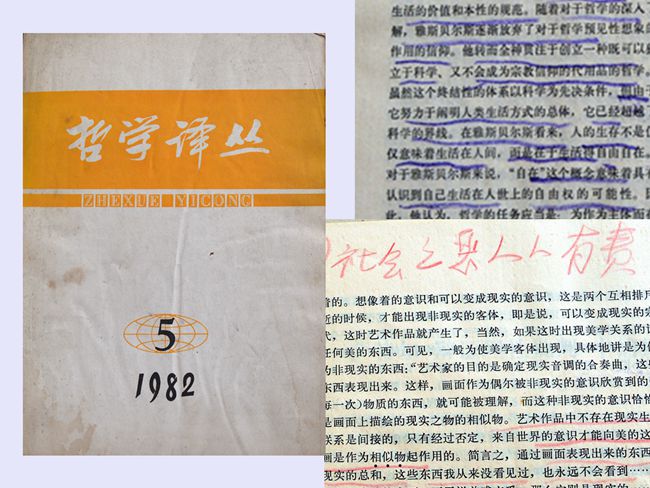 哲学译丛
ZHEXUE YICONG
5
1982
生活的价值和本性的规范。随着对于哲学的深入
解，雅斯贝尔斯逐渐放弃了对于哲学预见性想象的
作用的信仰。他转而全神贯注于创立一种既可以
立于科学、又不会成为宗教信仰的代用品的哲学。
虽然这个终结性的体系以科学为先决条件，但由于
它努力于阐明人类生活方式的总体，它已经超越
科学的界线。在雅斯贝尔斯看来，人的生存不是仅
仅意味着生活在人间，而是在于生活得自由自在。
对于雅斯贝尔斯来说，“自在”这个概念意味着具有
认识到自己生活在人世上的自由权的可能性。因
此，他认为，哲学的任务应当是：为作为主体而
社会之 人人有责
着的。想像着的意识和可以变成现实的意识，这是两个互相排斥
近的时候，才能出现非现实的客体，即是说，可以变成现实的
式，这时艺术作品就产生了，当然，如果这时出现美学关系的
任何美的东西。可见，一般为使美学客体出现，具体地讲是为
的非现实的东西：“艺术家的目的是确定现实音调的合奏曲，这
东西表现出来。这样，画面作为偶尔被非现实的意识欣赏到的
每一次）物质的东西，就可能被理解，而这种非现实的意识恰恰
是画面上描绘的现实之物的相似物。艺术作品中不存在现实生
联系是间接的，只有经过否定，来自世界的意识才能向美的这
画是作为相似物起作用的。简言之，通过画面表现出来的东西
现实的总和，这些东西我从来没看见过，也永远不会看到……